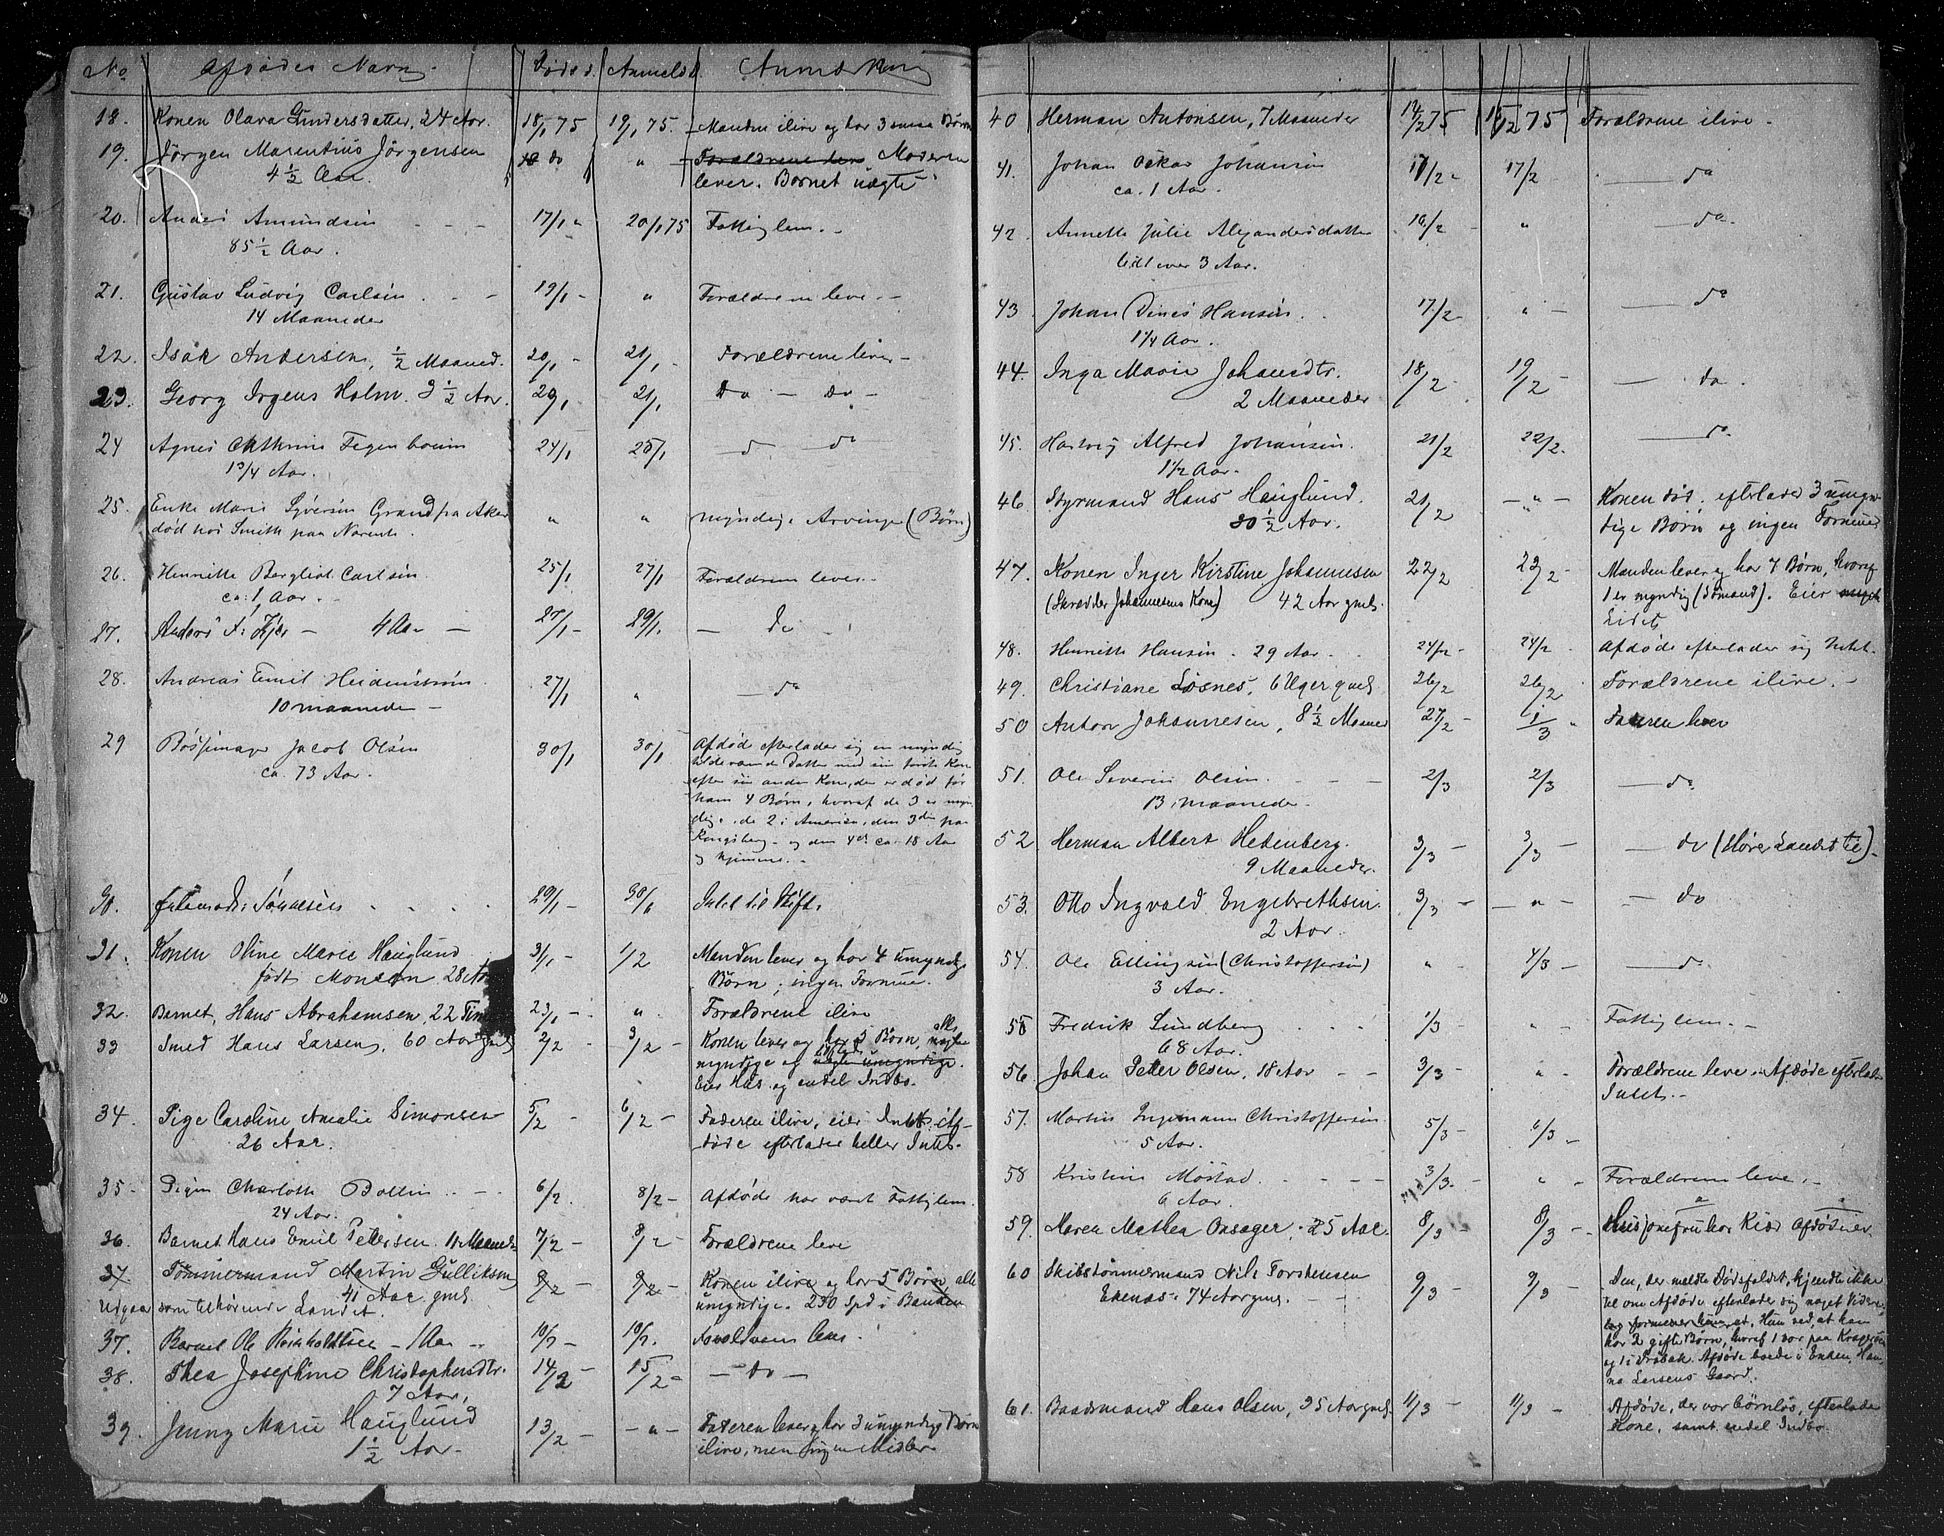 No Afdødes Navn Døds d. Anmeldt Anmærkning
18. Konen Olava Gundersdatter, 24 Aar. 18/1 75 19/1 75 Manden ilive og har 3 smaa Børn
19. Jørgen Marentius Jørgensen do " Forældrene leve Moderen
4 1/2 Aar. lever. Barnet uægte
20. Anders Amundsen 17/1 " 20/1 75 Fattiglem. -
85 1/2 Aar.
21. Gustav Ludvig Carlsen 19/1 - " Forældrene leve. -
14 Maaneder
22. Isak Andersen, 1/2 Maaned. 20/1 - 21/1 Forældrene lever -
23. Georg Irgens Holm. 3 1/2 Aar. 20/1 21/1 Do - do -
24 Agnes Cathrine Fegenboum 24/1 25/1 d do
1 3/4 Aar.
25. Enke Marie Syversen Grand fra Aker " " myndige Arvinge (Børn)
død hos Smith paa
26. Henriette Bergliot Carlsen. 25/1 27/1 Forældrene lever -
ca: 1 Aar. -
27. Anders F: - 4 Aar - 27/1 - 29/1. - do
28. Andreas Emil Heidenstrøm 27/1 " - do
10 maaneder -
29 Bøssmager Jacob Olsen 30/1 30/1 Afdøde efterlader sig en myndig
ca. 73 Aar. Datter med sin første Kone
efter sin anden Kone, der er død før
ham 4 Børn, hvoraf de 3 er myn-
dige. de 2 i Amerika, den 3die paa
Kongsberg - og den 4de ca. 18 Aar
og hjemme. -
30. Tønnesen 29/1 - 30/1 Intet til Skifte
31. Konen Oline Marie Hauglund 31/1 - 1/2 Manden lever og har 4 umyndige
født Monsen 28 Aar Børn; ingen Formue.
32. Barnet, Hans Abrahamsen, 22 Tim 23/1 - " Forældrene ilive
33 Smed Hans Larsen, 60 Aar gml 2/2 3/2 - Konen lever og har 5 Børn, alle
myndige og umyndige.
Eier Hus og endel Indbo.
34. Pige Caroline Amalie Simonsen 5/2 - 6/2 - Faderen ilive, eier Intet. Af-
26 Aar. døde efterlader heller Intet.
35. Pigen Charlotte Bollin 6/2. 8/2 - Afdøde har været Fattiglem.
24 Aar.
36. Barnet Hans Emil Petersen. 11 Maaneder 7/2 - 8/2 - Forældrene leve
37. Tømmermand Martin Gulliksen 9/2 - 9/2 - Konen ilive og har 5 Børn, alle
41 Aar gml. umyndige. 230 Spd i Banken
Udgaar som tilhørende Landet.
37. Barnet Ole Reinholdtsen - 1 Aar 10/2 - 10/2. Forældrene leve.
38. Thea Josephine Christophersdtr. 14/2 - 15/2 - - do -
7 Aar.
39. Jenny Marie Hauglund 13/2 - - " - Faderen lever og har 3 umyndige Børn
1 1/2 Aar. ilive, men ingen Midler
40 Herman Antonsen, 7 Maaneder 14/2 75 15/2 75 Forældrene ilive -
41. Johan Oskar Johansen 17/2 - 17/2 - do
ca. 1 Aar.
42. Annette Julie Alexandersdatter 16/2 - " - do
lidt over 3 Aar.
43. Johan Dines Hansen. 17/2 " - - do
1 1/4 Aar.
44. Inga Marie Johansdtr. 18/2 - 19/2 - - do.
2 Maaneder
45. Hartvig Alfred Johansen. 21/2 22/2. - do
1 1/2 Aar.
46. Styrmand Hans Hauglund. 21/2 - " - Konen død. efterlader 3 umyn-
30 1/2 Aar. dige Børn og ingen Formue
47. Konen Inger Kirstine Johannesen 22/2 23/2 - Manden lever og har 7 Børn, hvoraf
(Skrædder Johannesens Kone) 42 Aar gml. 1 er myndig (Sømand). Eier
Lidet
48. Henriette Hansen - 29 Aar - 24/2 - 24/2 - Afdøde efterlader sig Intet.
49. Christiane Løsnes, 6 Uger gml. 26/2 26/2 - Forældrene ilive. -
50 Anton Johannesen, 8 1/2 Maaned 27/2 - 1/3 " Faderen lever
51. Ole Severin Olsen. 2/3 2/3 - do
13 maaneder -
52 Herman Albert Hedenberg. 3/3 - 3/3 - - do (Hører Landet til) -
9 Maaneder.
53. Otto Ingvald Engebrethsen. 3/3 - - " - - do
2 Aar.
54. Ole Ellingsen (Christoffersen) " 4/3 - - do
3 Aar.
55 Fredrik Lundberg 1/3 - " - Fattiglem. -
68 Aar.
56. Johan Petter Olsen, 18 Aar 3/3 - " - Forældrene leve - Afdøde efterlader
Intet. -
57. Martin Ingemann Christoffersen. 5/3 - 6/3 -
5 Aar.
58 Kristine Mostad. 3/3. " - Forældrene leve. -
6 Aar
59. Maren Mathea Onsager. 25 Aar. 8/3 - 8/3 -
60 Skibstømmermand Nils Torstensen 9/3 - 9/3 - Den, der meldte Dødsfaldet, kjendte ikke
Ekenæs - 74 Aar gml. til om Afdøde efterlader sig noget videre.
Hun ved, at han
har 2 gifte Børn, hvoraf 1 bor paa Kragerø
og 1 i Drøbak. Afdøde boede i Enken Han-
na Larsens Gaard.
61. Baadsmand Hans Olsen, 35 Aar gml. 11/3 - 11/3 - Afdøde, der var børnløs, efterlader
Kone, samt endel Indbo.